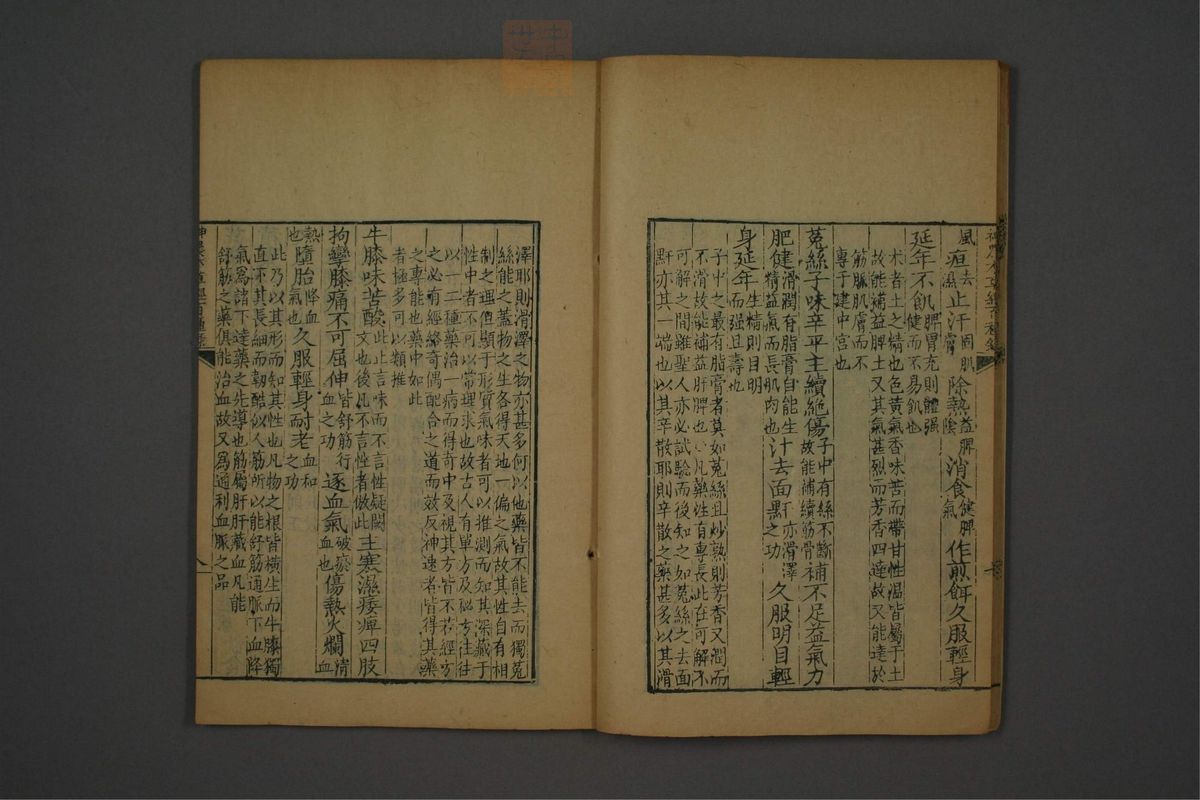 神農本草經百種錄
風疸去濕止汗固肌膚除熱益脾陰消食健脾氣作煎餌久服輕身
延年不飢脾胃充則體强健而不易飢也
术者土之精也色黃氣香味苦而帶甘性温皆屬于土
故能補益脾土又其氣甚烈而芳香四達故又能達於
筋脈肌膚而不
專于建中宮也
菟絲子味辛平主續絶傷子中有絲不斷故能補續筋骨補不足益氣力
肥健滑潤有脂膏自能生精益氣而長肌肉也汁去面䵟亦滑澤之功久服明目輕
身延年生精則目明而强且壽也
子中之最有脂膏者莫如菟絲且炒熟則芳香又潤而
不滑故能補益肝脾也○凡藥性有專長此在可解不
可解之間雖聖人亦必試驗而後知之如菟絲之去面
䵟亦其一端也以其辛散耶則辛散之藥甚多以其滑
澤耶則滑澤之物亦甚多何以他藥皆不能去而獨菟
絲能之蓋物之生各得天地一偏之氣故其性自有相
制之理但顯于形質氣味者可以推測而知其深藏于
性中者不可以常理求也故古人有單方及秘方往往
以一二種藥治一病而得奇中及視其方皆不若經方
之必有經緯奇偶配合之道而效反神速者皆得其藥
之專能也藥中如此
者極多可以類推
牛膝味苦酸此止言味而不言性疑闕文也後凡不言性者倣此主寒濕痿痺四肢
拘攣膝痛不可屈伸皆舒筋行血之功逐血氣破瘀血也傷熱火爛清血
熱也墮胎降血氣也久服輕身耐老血和之功
此乃以其形而知其性也凡物之根皆橫生而牛膝獨
直下其長細而韌酷似人筋所以能舒筋通脈下血降
氣爲諸下達藥之先導也筋屬肝肝藏血凡能
舒筋之藥俱能治血故又爲通利血脈之品
神農本草經百種錄